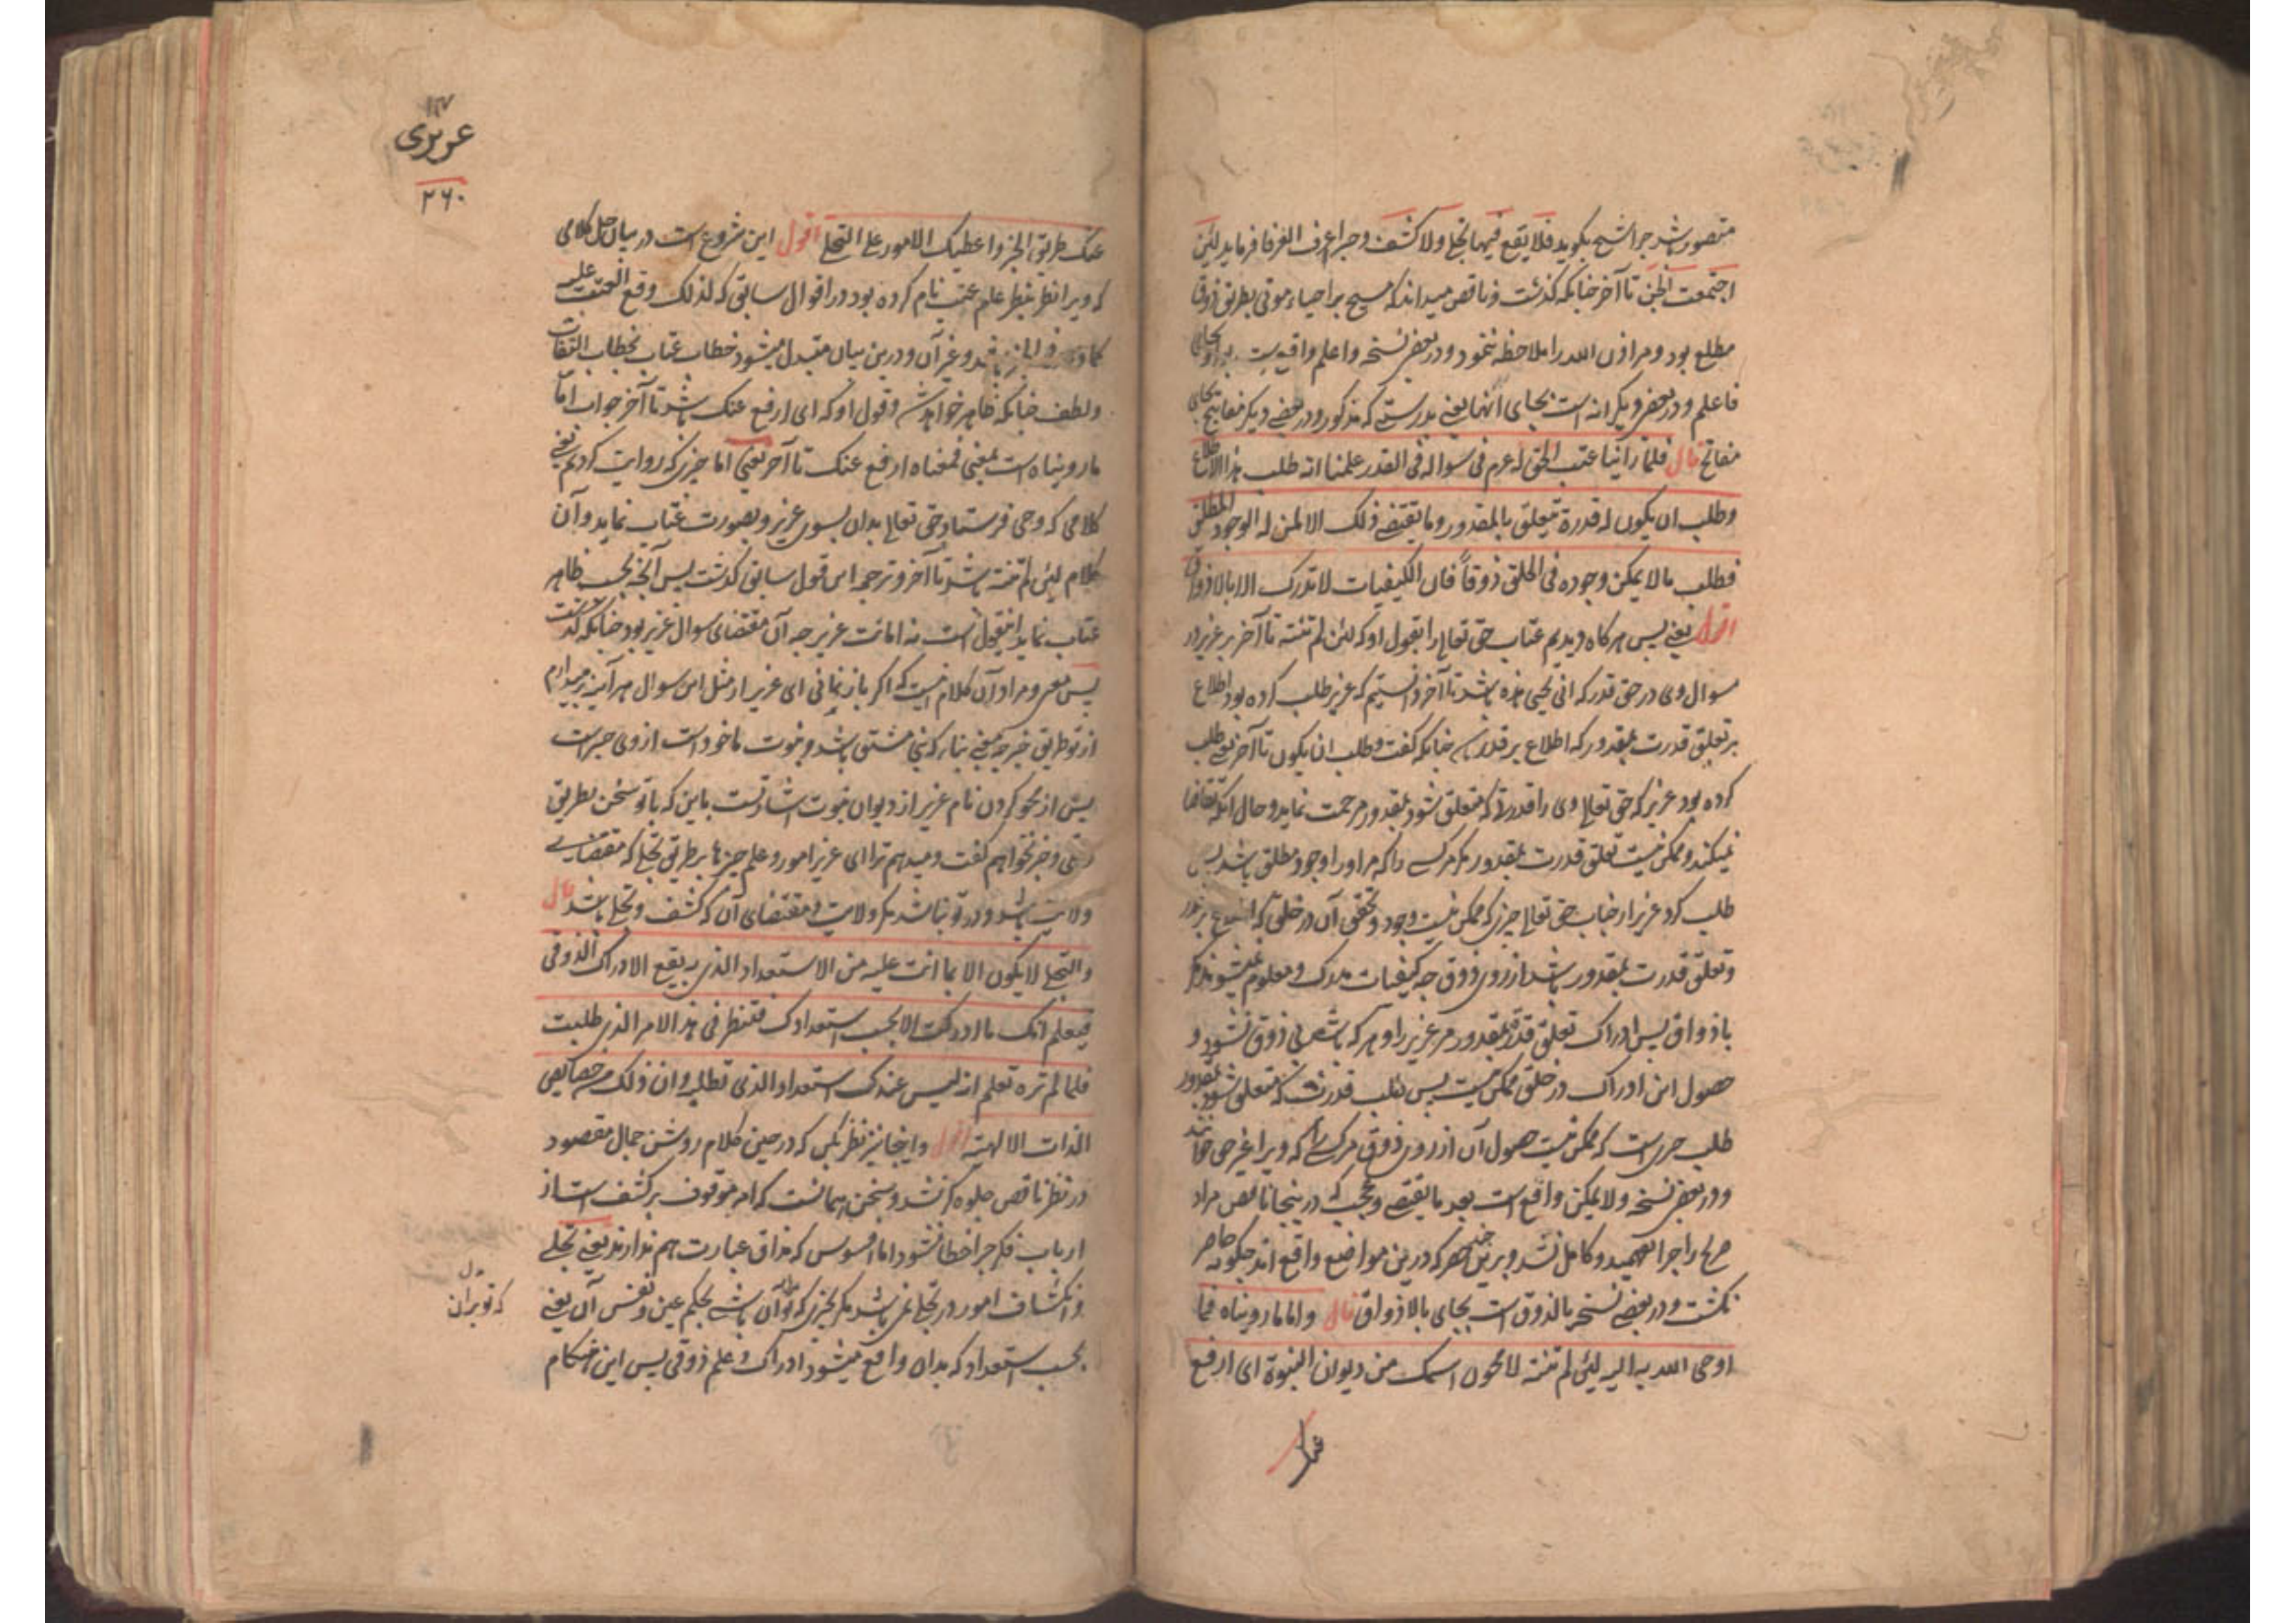 متصور باشد چرا شیخ بگوید فلا یقع فیها تجلی ولا کشف و چرا اعرف العرفا فرماید لئن
اجتمعت الجن تا آخر چنانکه گذشت و ناقص میداند که مسیح بر احیاء موتی بطریق ذوق
مطلع بود و مر اذن الله را ملاحظه ننمود و در بعض نسخه واعلم واقع است بجای
فاعلم و در بعض دیگر انه است بجای انها یعنی بدرستی که مذکور و در بعضی دیگر مفاتیح بجای
مفاتح قال فلما راینا عتب الحق له عم فی سواله فی القدر علمنا انه طلب هذا الاطلاع
وطلب ان یکون له قدرة تتعلق بالمقدور وما یقتضی ذلک الا لمن له الوجود المطلق
فطلب ما لا یمکن وجوده فی الخلق ذوقاً فان الکیفیات لا تدرک الا بالاذواق
اقول یعنی پس هرگاه دیدیم عتاب حق تعالی را بقول او که لئن لم تنته تا آخر بر عزیر در
سوال وی در حق قدر که انی یحیی هذه باشد تا آخر دانستیم که عزیر طلب کرده بود اطلاع
بر تعلق قدرت بمقدور که اطلاع بر قدر است چنانکه گفت وطلب ان یکون تا آخر یعنی طلب
کرده بود عزیر که حق تعالی وی را قدرتی که متعلق شود بمقدور مرحمت نماید و حال آنکه تقاضا
نمیکند و ممکن نیست تعلق قدرت بمقدور مگر مر کسی را که مر او را وجود مطلق باشد پس
طلب کرد عزیر از جناب حق تعالی چیزی که ممکن نیست وجود و تحقق آن در خلق که اطلاع بر قدر
و تعلق قدرت بمقدور باشد از روی ذوق چه کیفیات مدرک و معلوم نمیشوند مگر
باذواق پس ادراک تعلق قدرة بمقدور مر عزیر را و هر که باشد بی ذوق نشود و
حصول این ادراک در خلق ممکن نیست پس طلب قدرت که متعلق شود بمقدور
طلب چیزی است که ممکن نیست حصول آن از روی ذوق مر کسی را که ویرا غیر حق خوانند
و در بعض نسخه ولا یمکن واقع است بعد ما یقتضی و عجب که در اینجا ناقص مراد
صالح را چرا نفهمید و کامل نشد و برین حصر که درین مواضع واقع اند چگونه حاضر
نگشت و در بعضی نسخه بالذوق است بجای بالاذواق قال واما ما رویناه فما
اوحی الله به الیه لئن لم تنته لامحون اسمک من دیوان النبوة ای ارفع
عنک
عزیزی
۲۶۰
عنک طریق الخبر واعطیک الامور علی التجلی اقول این شروع است در بیان حل کلامی
که ویرا نظر بنظر علم عتب نام کرده بود در اقوال سابق که لذلک وقع العتب علیه
و غیر آن و درین بیان متبدل میشود خطاب عتاب بخطاب التفات
و لطف چنانکه ظاهر خواهد شد و قول او که ای ارفع عنک باشد تا آخر جواب اما
ما رویناه است بمعنی فمعناه ارفع عنک تا آخر یعنی اما چیزی که روایت کردیم یعنی
کلامی که وحی فرستاد حق تعالی بدان بسوی عزیر و بصورت عتاب نماید و آن
کلام لئن لم تنته باشد تا آخر و ترجمه این قول سابق گذشت پس آنچه بحسب ظاهر
عتاب نماید این قول است نه اهانت عزیر چه آن مقتضای سوال عزیر بود چنانکه گذشت
پس معنی و مراد آن کلام اینست که اگر باز نمانی ای عزیر از مثل این سوال هر آینه بردارم
از تو طریق خبر چه یعنی نباء که نبی مشتق باشد و نبوت ماخوذ است از وی خبر است
پس از محو کردن نام عزیر از دیوان نبوت اشارتست باین که با تو سخن بطریق
وحی و خبر نخواهم گفت و میدهم ترا ای عزیر امور و علم چیزها بر طریق تجلی که مقتضای
ولایت باشد و در تو نباشد مگر ولایت و مقتضای آن که کشف و تجلی باشد قال
والتجلی لا یکون الا بما انت علیه من الاستعداد الذی به یقع الادراک الذوقی
فتعلم انک ما ادرکت الا بحسب استعدادک فتنظر فی هذا الامر الذی طلبت
فلما لم تره تعلم انه لیس عندک استعداد الذی تطلبه وان ذلک من خصایص
الذات الالهیة اقول و اینجا نیز نظر بکن که در حین کلام روشن جمال مقصود
در نظر ناقص جلوه گر نشد و سخن همانست که امر موقوف بر کشف است از
ارباب فکر چرا خطا نشود اما افسوس که مذاق عبارت هم ندارند یعنی تجلی
و انکشاف امور در تجلی نمی باشد مگر بچیزی که تو بر آن باشی بحکم عین و نفس آن یعنی
بحسب استعداد که بدان واقع میشود ادراک و علم ذوقی پس این هنگام
که تو بر آن